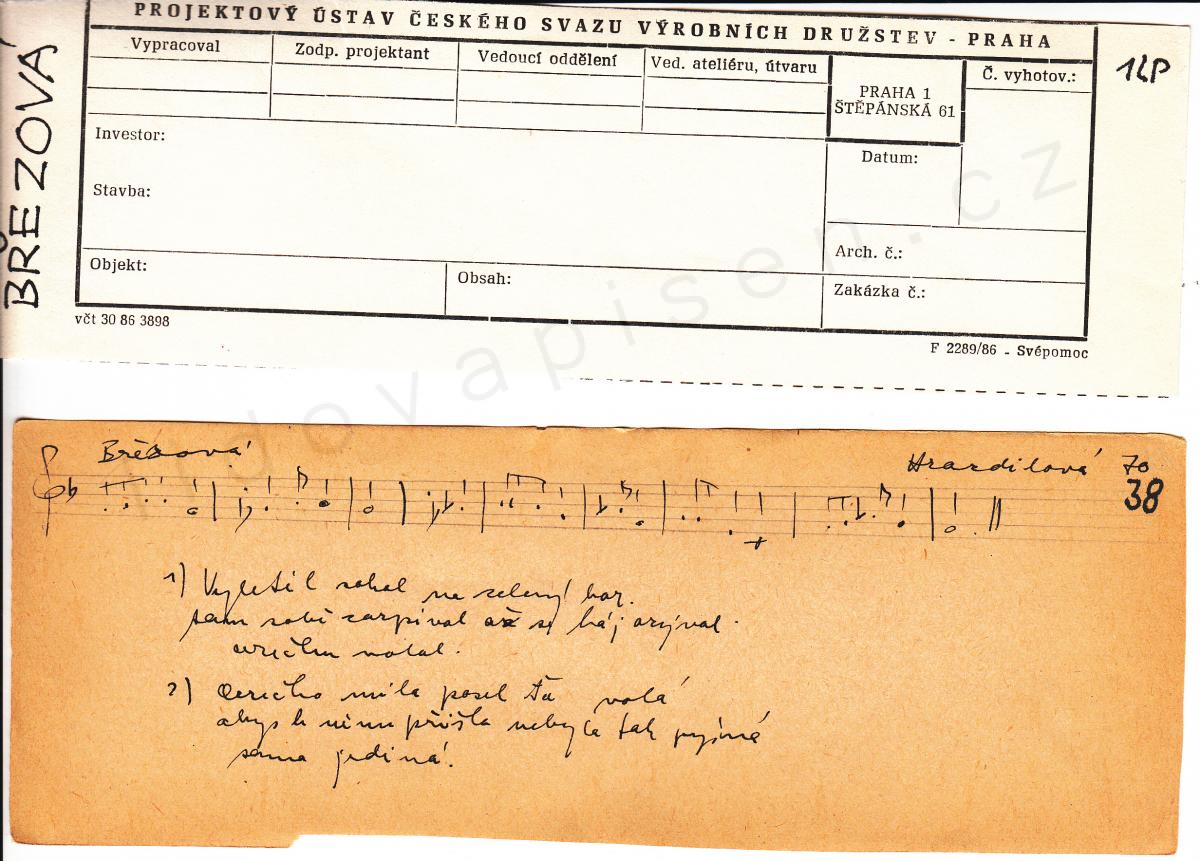 PROJEKTOVÝ ÚSTAV ČESKÉHO SVAZU VÝROBNÍCH DRUŽSTEV - PRAHA
Vypracoval
Zodp. projektant
Vedoucí oddělení
Ved. ateliéru, útvaru
PRAHA 1
ŠTĚPÁNSKÁ 61
Č. vyhotov.:
1LP
BŘEZOVÁ
Investor:
Datum:
Stavba:
Arch. č.:
Objekt:
Obsah:
Zakázka č.:
včt 30 86 3898
F 2289/86 - Svépomoc
lidovapisen.cz
Březová
Hrazdilová 70
38
1) Vyletěl sokol na zelený bor.
sám sobě zazpíval až se háj ozýval
volal.
2) mila posel ťa volá
abys k nímu přišla nebyla tak pyšná
sama jediná.